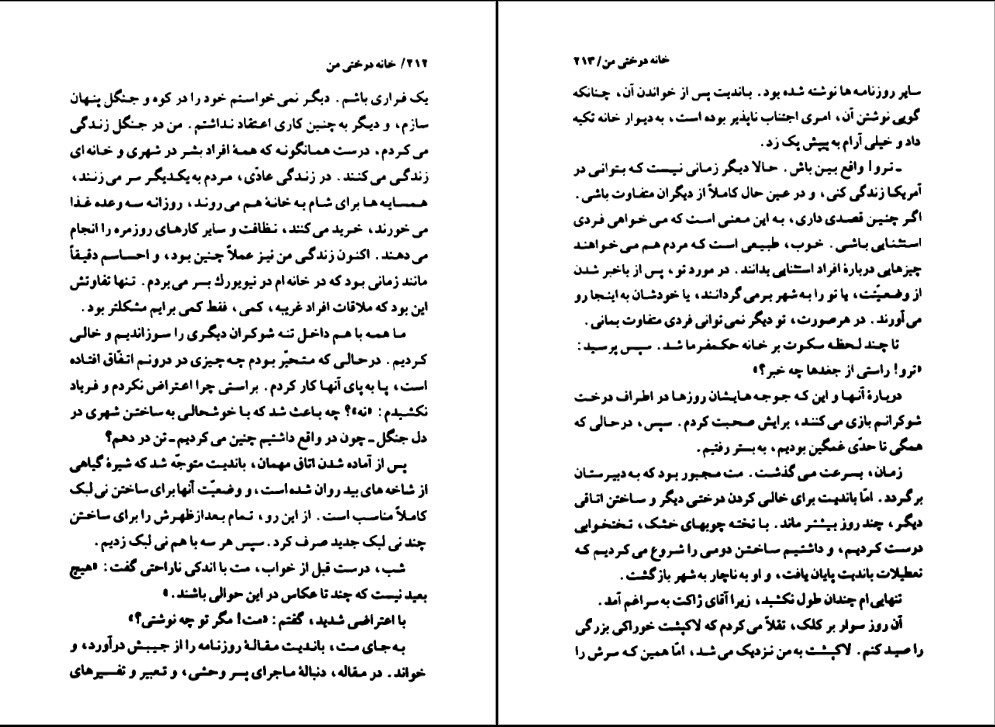 ۲۱۲/ خانه درختی من
یک فراری باشم. دیگر نمی خواستم خود را در کوه و جنگل پنهان
سازم، و دیگر به چنین کاری اعتقاد نداشتم. من در جنگل زندگی
می کردم، درست همانگونه که همهٔ افراد بشر در شهری و خانه ای
زندگی می کنند. در زندگی عادّی، مردم به یکدیگر سر می زنند،
همسایه ها برای شام به خانهٔ هم می روند، روزانه سه وعده غذا
می خورند، خرید می کنند، نظافت و سایر کارهای روزمره را انجام
می دهند. اکنون زندگی من نیز عملاً چنین بود، و احساسم دقیقاً
مانند زمانی بود که در خانه ام در نیویورك بسر می بردم. تنها تفاوتش
این بود که ملاقات افراد غریبه، کمی، فقط کمی برایم مشکلتر بود.
ما همه با هم داخل تنه شوکران دیگری را سوزاندیم و خالی
کردیم. درحالی که متحیّر بودم چه چیزی در درونم اتفّاق افتاده
است، پا به پای آنها کار کردم. براستی چرا اعتراض نکردم و فریاد
نکشیدم: «نه»؟ چه باعث شد که با خوشحالی به ساختن شهری در
دل جنگل ـ چون در واقع داشتیم چنین می کردیم ـ تن در دهم؟
پس از آماده شدن اتاق مهمان، باندیت متوجّه شد که شیرهٔ گیاهی
از شاخه های بید روان شده است، و وضعیّت آنها برای ساختن نی لبک
کاملاً مناسب است. از این رو، تمام بعدازظهرش را برای ساختن
چند نی لبک جدید صرف کرد. سپس هر سه با هم نی لبک زدیم.
شب، درست قبل از خواب، مت با اندکی ناراحتی گفت: «هیچ
بعید نیست که چند تا عکاس در این حوالی باشند.»
با اعتراضی شدید، گفتم: «مت! مگر تو چه نوشتی؟»
به جای مت، باندیت مقالهٔ روزنامه را از جیبش درآورد، و
خواند. در مقاله، دنبالهٔ ماجرای پسر وحشی، و تعبیر و تفسیرهای
خانه درختی من/ ۲۱۳
سایر روزنامه ها نوشته شده بود. باندیت پس از خواندن آن، چنانکه
گویی نوشتن آن، امری اجتناب ناپذیر بوده است، به دیوار خانه تکیه
داد و خیلی آرام به پیپش پک زد.
ـ ترو! واقع بین باش. حالا دیگر زمانی نیست که بتوانی در
آمریکا زندگی کنی، و در عین حال کاملاً از دیگران متفاوت باشی.
اگر چنین قصدی داری، به این معنی است که می خواهی فردی
استثنایی باشی. خوب، طبیعی است که مردم هم می خواهند
چیزهایی دربارهٔ افراد استثنایی بدانند. در مورد تو، پس از باخبر شدن
از وضعیّتت، یا تو را به شهر برمی گردانند، یا خودشان به اینجا رو
می آورند. در هرصورت، تو دیگر نمی توانی فردی متفاوت بمانی.
تا چند لحظه سکوت بر خانه حکمفرما شد. سپس پرسید:
«ترو! راستی از جغدها چه خبر؟»
دربارهٔ آنها و این که جوجه هایشان روزها در اطراف درخت
شوکرانم بازی می کنند، برایش صحبت کردم. سپس، درحالی که
همگی تا حدّی غمگین بودیم، به بستر رفتیم.
زمان، بسرعت می گذشت. مت مجبور بود که به دبیرستان
برگردد. امّا باندیت برای خالی کردن درختی دیگر و ساختن اتاقی
دیگر، چند روز بیشتر ماند. با تخته چوبهای خشک، تختخوابی
درست کردیم، و داشتیم ساختن دومی را شروع می کردیم که
تعطیلات باندیت پایان یافت، و او به ناچار به شهر بازگشت.
تنهایی ام چندان طول نکشید، زیرا آقای ژاکت به سراغم آمد.
آن روز سوار بر کلک، تقلاّ می کردم که لاکپشت خوراکی بزرگی
را صید کنم. لاکپشت به من نزدیک می شد، امّا همین که سرش را